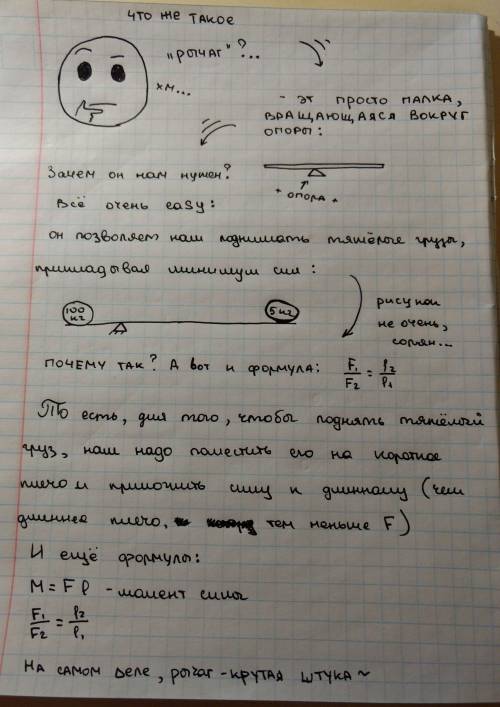 что же такое
„рычаг“?...
хм...
- эт просто палка,
вращающаяся вокруг
опоры:
Зачем он нам нужен?
* опора *
Всё очень easy:
он позволяет нам поднимать тяжёлые грузы,
прикладывая минимум сил:
100 кг
5 кг
рисунки
не очень,
сорян...
почему так? А вот и формула: F₁/F₂ = l₂/l₁
То есть, для того, чтобы поднять тяжёлый
груз, нам надо поместить его на короткое
плечо и приложить силу к длинному (чем
длиннее плечо, тем меньше F)
И ещё формулы:
M = F l - момент силы
F₁/F₂ = l₂/l₁
На самом деле, рычаг - крутая штука~